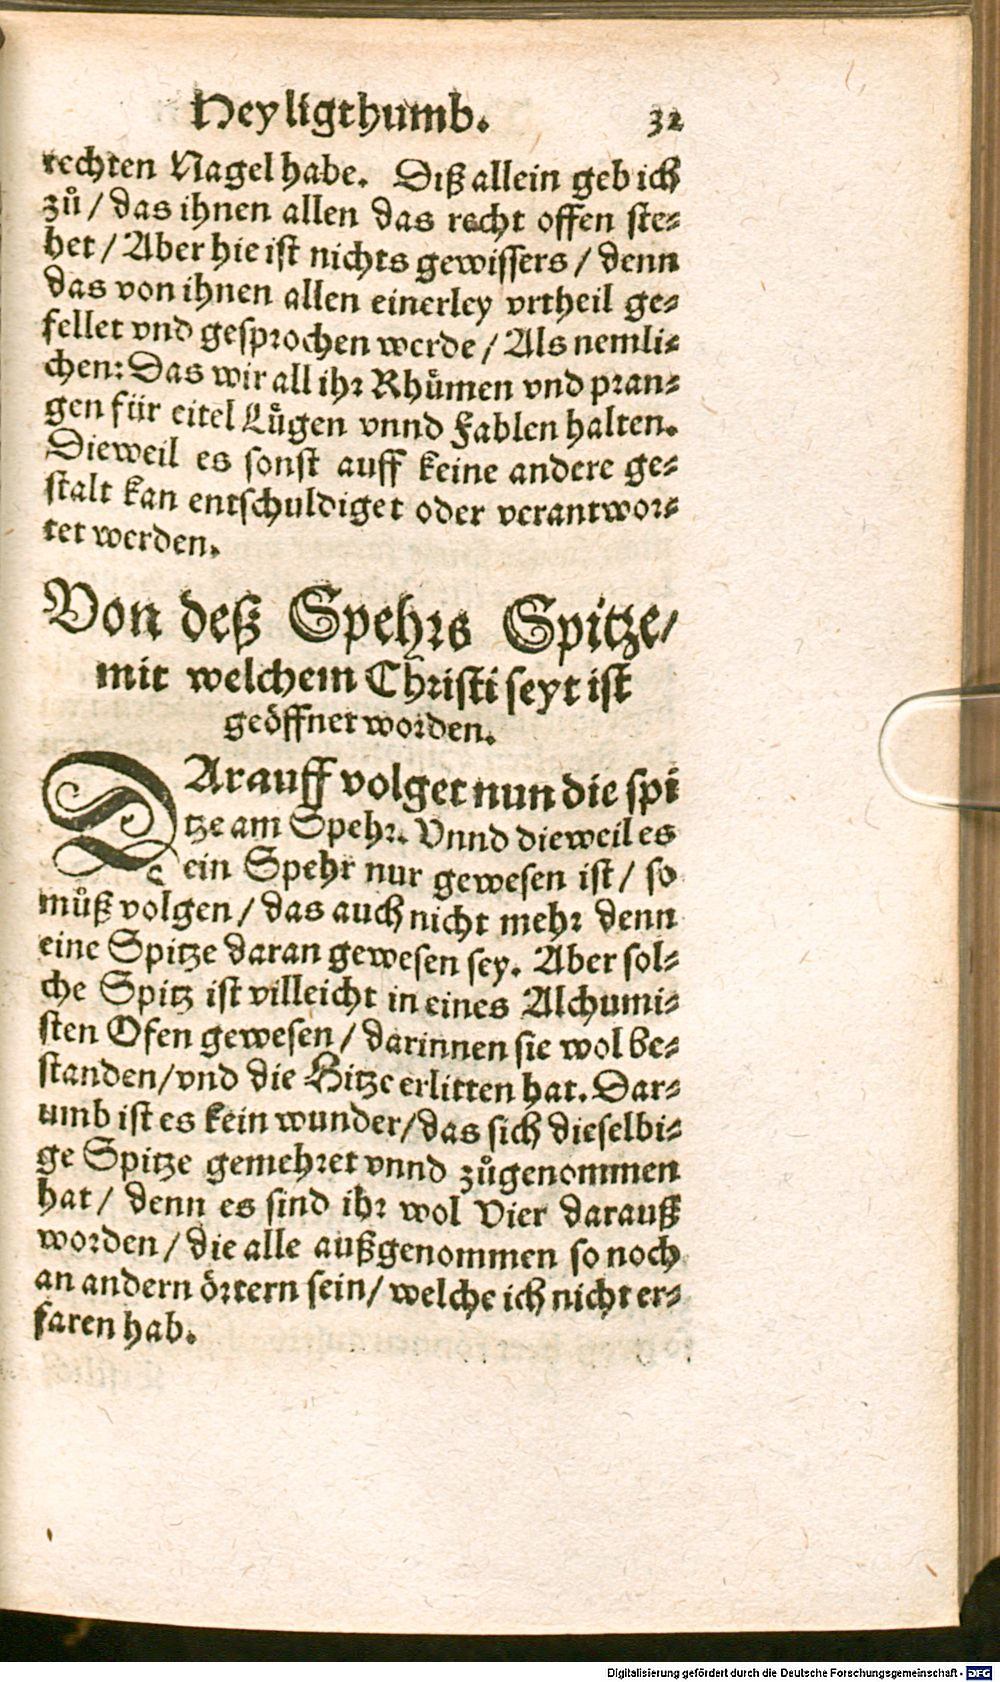 Heyligthumb. 32
rechten Nagel habe. Diß allein geb ich
zů / das ihnen allen das recht offen ste-
het / Aber hie ist nichts gewissers / denn
das von ihnen allen einerley vrtheil ge-
fellet vnd gesprochen werde / Als nemli-
chen: Das wir all ihr Rhůmen vnd pran-
gen für eitel Lůgen vnnd Fablen halten.
Dieweil es sonst auff keine andere ge-
stalt kan entschuldiget oder verantwor-
tet werden.
Von deß Spehrs Spitze/
mit welchem Christi seyt ist
geöffnet worden.
DArauff volget nun die spi
tze am Spehr. Vnnd dieweil es
ein Spehr nur gewesen ist / so
můß volgen / das auch nicht mehr denn
eine Spitze daran gewesen sey. Aber sol-
che Spitz ist villeicht in eines Alchumi-
sten Ofen gewesen / darinnen sie wol be-
standen/vnd die Hitze erlitten hat. Dar-
umb ist es kein wunder/das sich dieselbi-
ge Spitze gemehret vnnd zůgenommen
hat / denn es sind ihr wol Vier darauß
worden / die alle außgenommen so noch
an andern örtern sein/ welche ich nicht er-
faren hab.
Digitalisierung gefördert durch die Deutsche Forschungsgemeinschaft - DFG